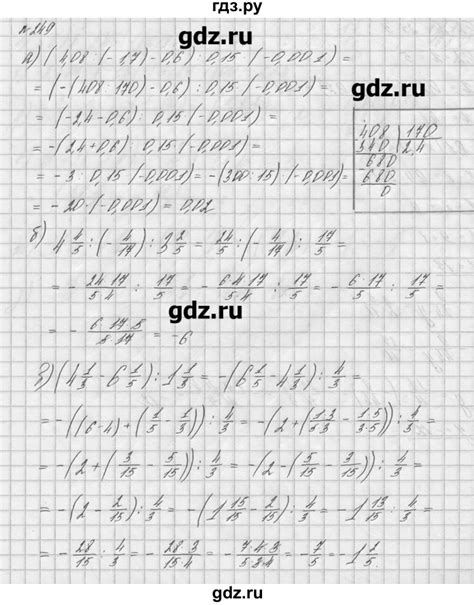 гдз.ру
№249
gdz.ru
а) (4,08 : (-1,7) - 0,6) : 0,15 · (-0,001) =
= (-(408 : 170) - 0,6) : 0,15 · (-0,001) =
gdz.ru
= (-2,4 - 0,6) : 0,15 · (-0,001) =
= -(2,4 + 0,6) : 0,15 · (-0,001) =
= -3 : 0,15 · (-0,001) = -(300 : 15) · (-0,001) =
= -20 · (-0,001) = 0,02
408 | 170
340 | 2,4
680
680
0
б) 4 4/5 : (-4/17) : 3 2/5 = 24/5 : (-4/17) : 17/5 =
= - 24·17/5·4 : 17/5 = - 6·4·17/5·4 : 17/5 = - 6·17/5 : 17/5 =
gdz.ru
= - 6·17·5/5·17 = -6
в) (4 1/3 - 6 1/5) : 1 1/3 = -(6 1/5 - 4 1/3) : 4/3 =
= -((6-4) + (1/5 - 1/3)) : 4/3 = -(2 + (1·3/5·3 - 1·5/3·5)) : 4/3 =
= -(2 + (3/15 - 5/15)) : 4/3 = -(2 - (5/15 - 3/15)) : 4/3 =
= -(2 - 2/15) : 4/3 = -(1 15/15 - 2/15) : 4/3 = -1 13/15 : 4/3 =
gdz.ru
= - 28/15 : 4/3 = - 28·3/15·4 = - 7·4·3/5·3·4 = - 7/5 = -1 2/5.
gdz.ru